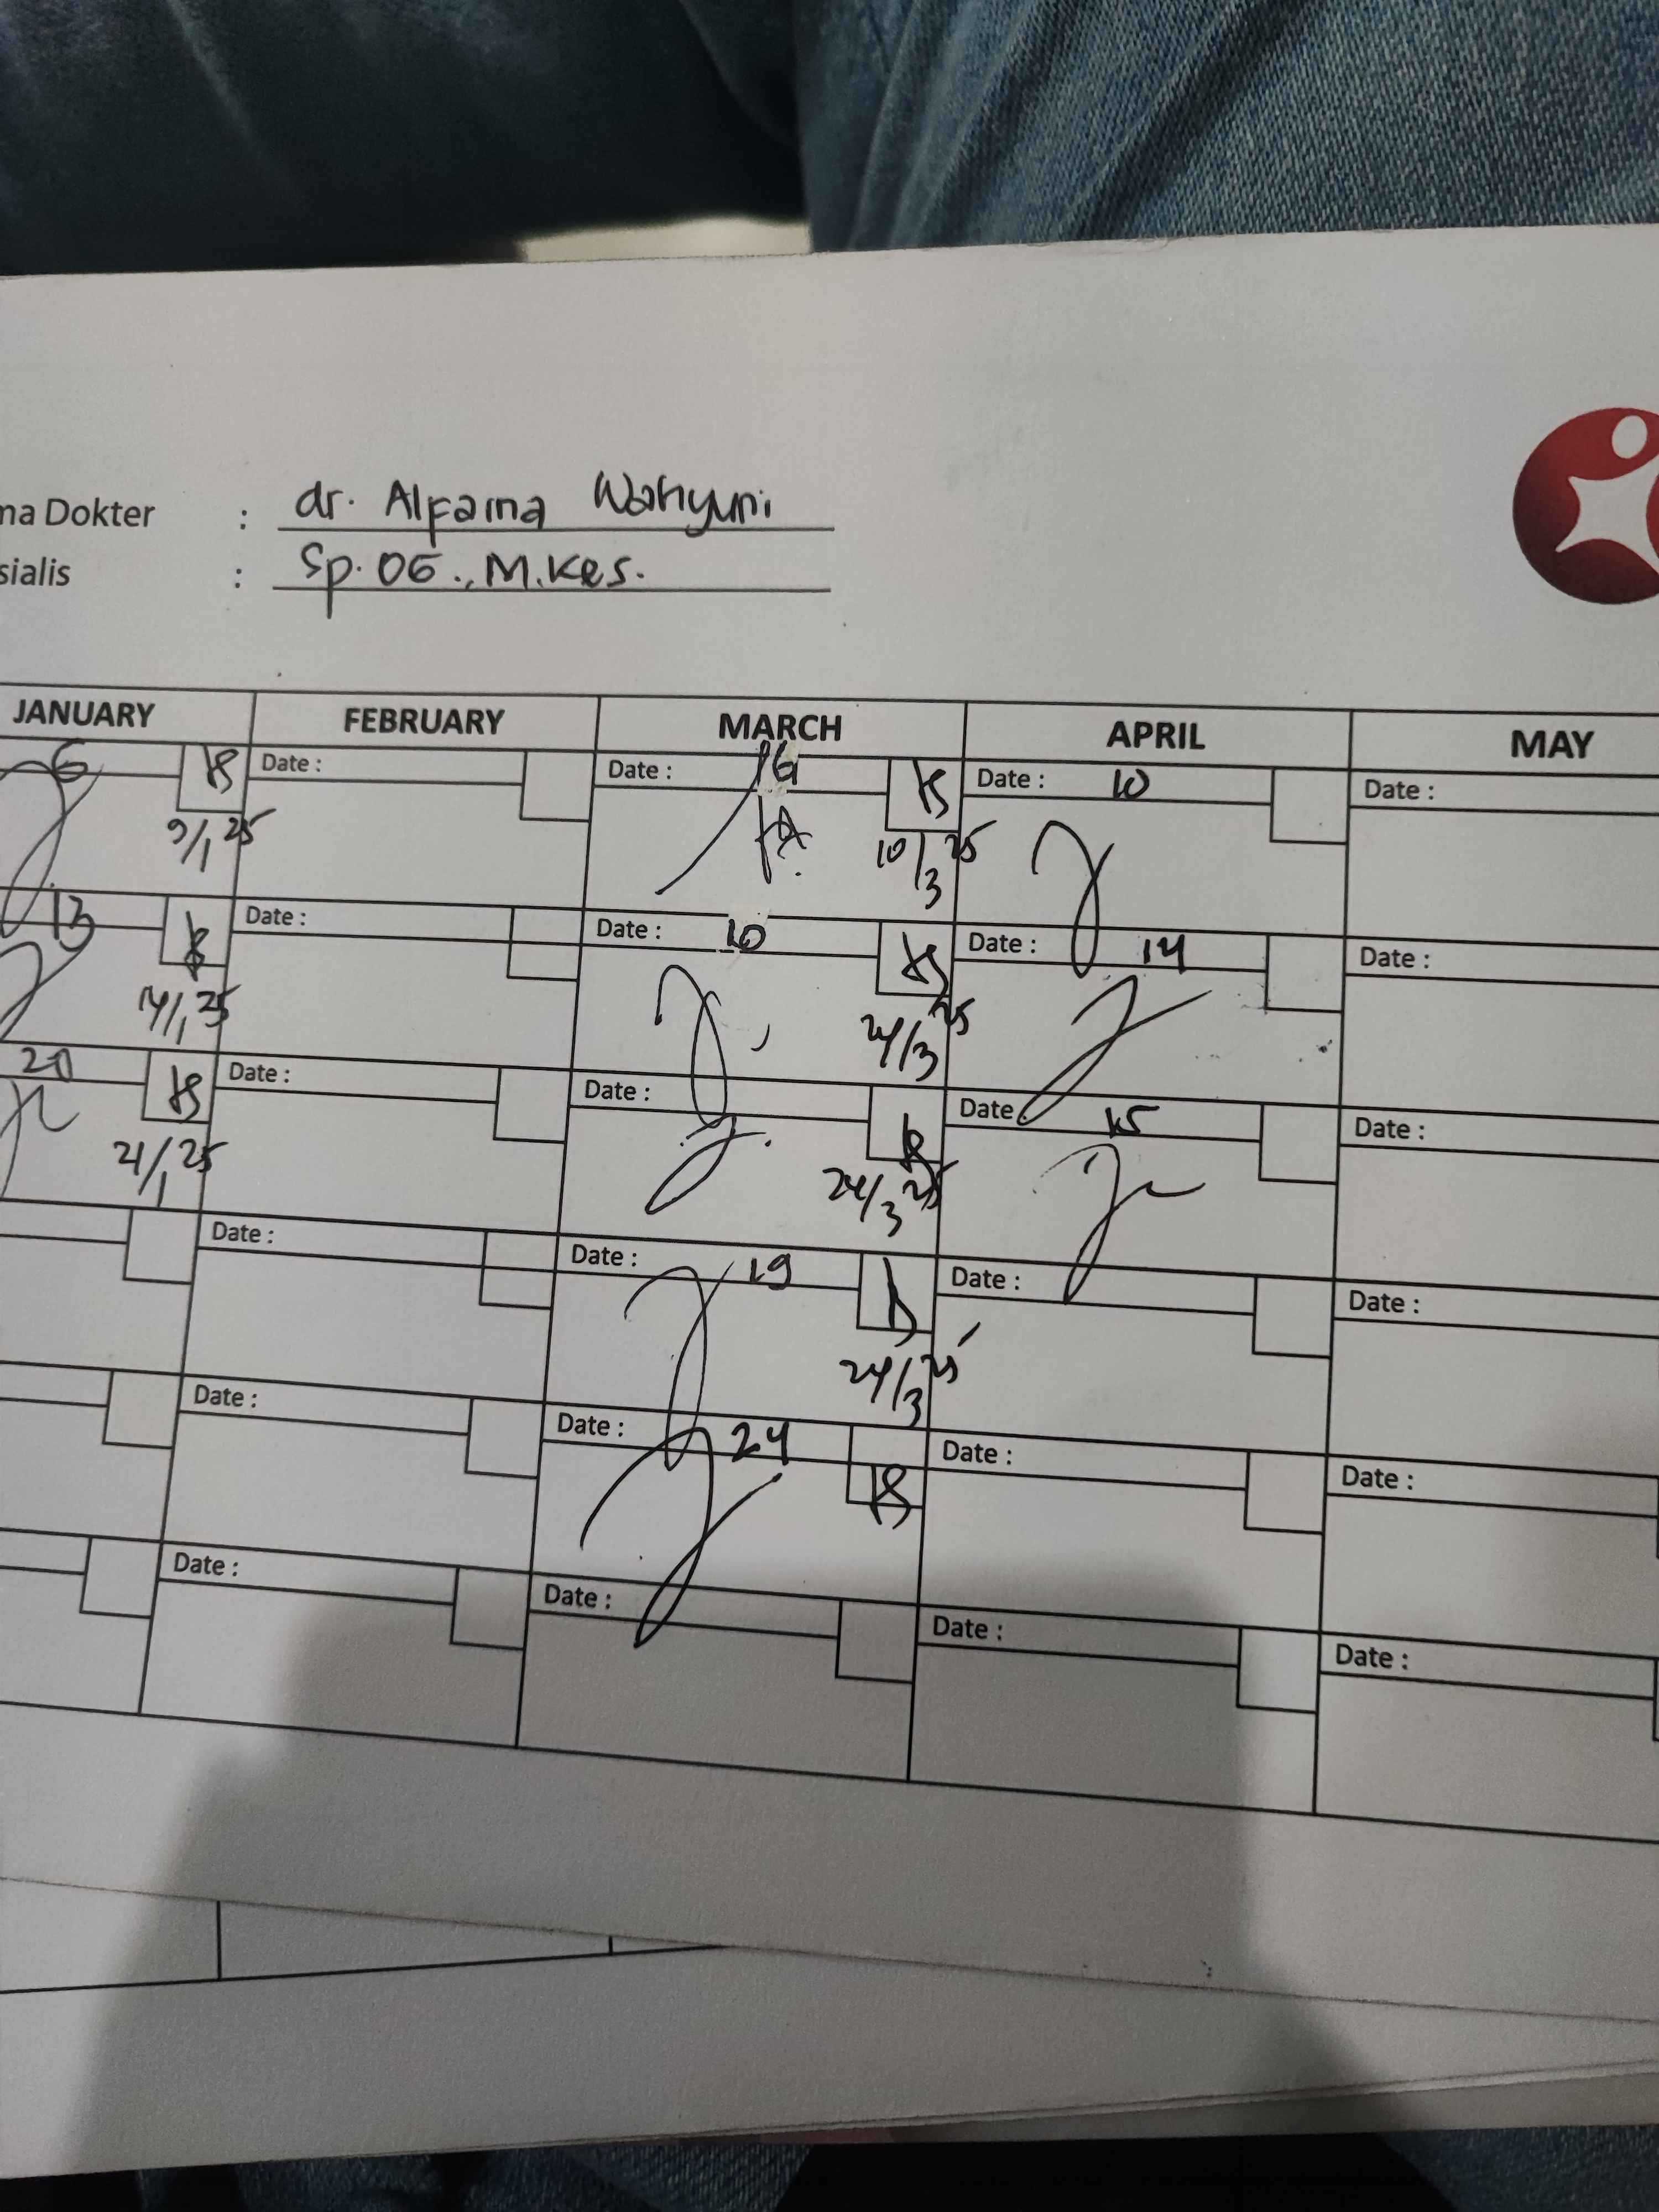 ma Dokter : dr. Alfaina Wahyuni
sialis : Sp. OG., M.Kes.
JANUARY FEBRUARY MARCH APRIL MAY
6 Date : Date : Date : 10 Date :
9/1 25 10/3 25
13 Date : Date : 10 Date : 14 Date :
14/1 25 24/3 25
20 Date : Date : Date 15 Date :
21/1 25 24/3 25
Date : Date : 19 Date : Date :
24/3 25
Date : Date : 24 Date : Date :
Date : Date : Date : Date :